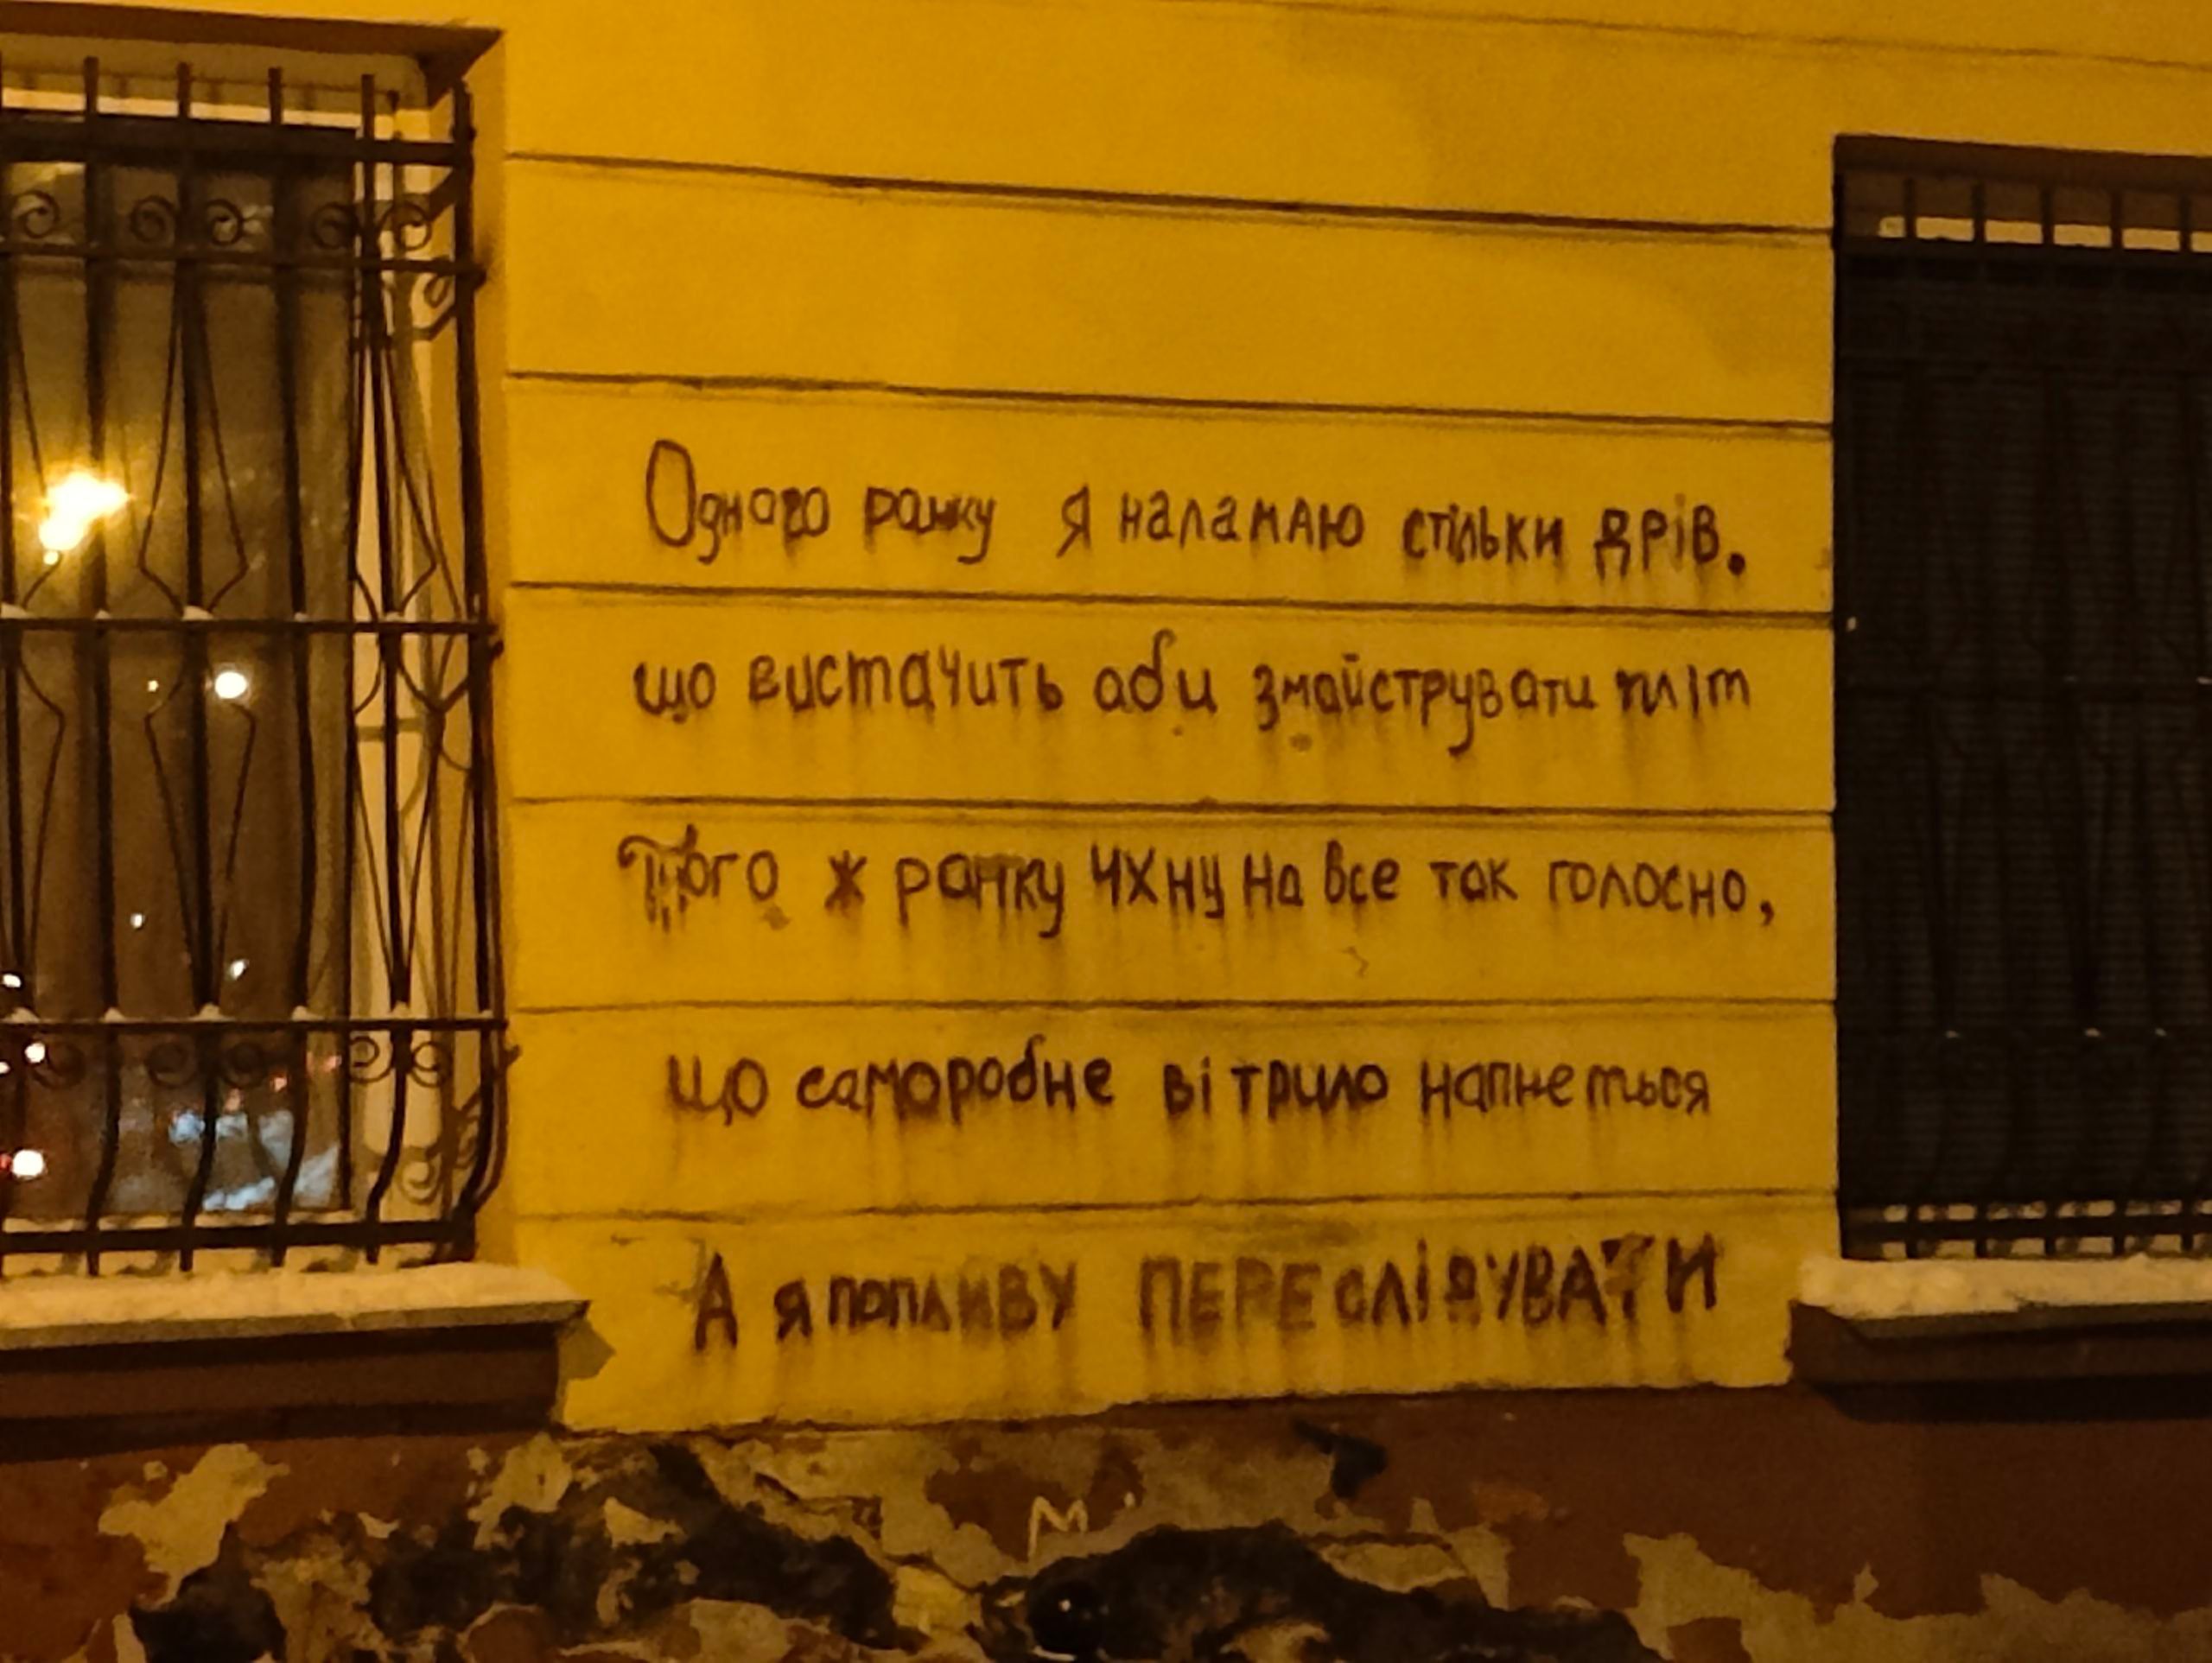 Одного ранку я наламаю стільки дрів.
що вистачить аби змайструвати пліт
Того ж ранку чхну на все так голосно,
що саморобне вітрило напнеться
А я попливу ПЕРЕСЛІДУВАТИ